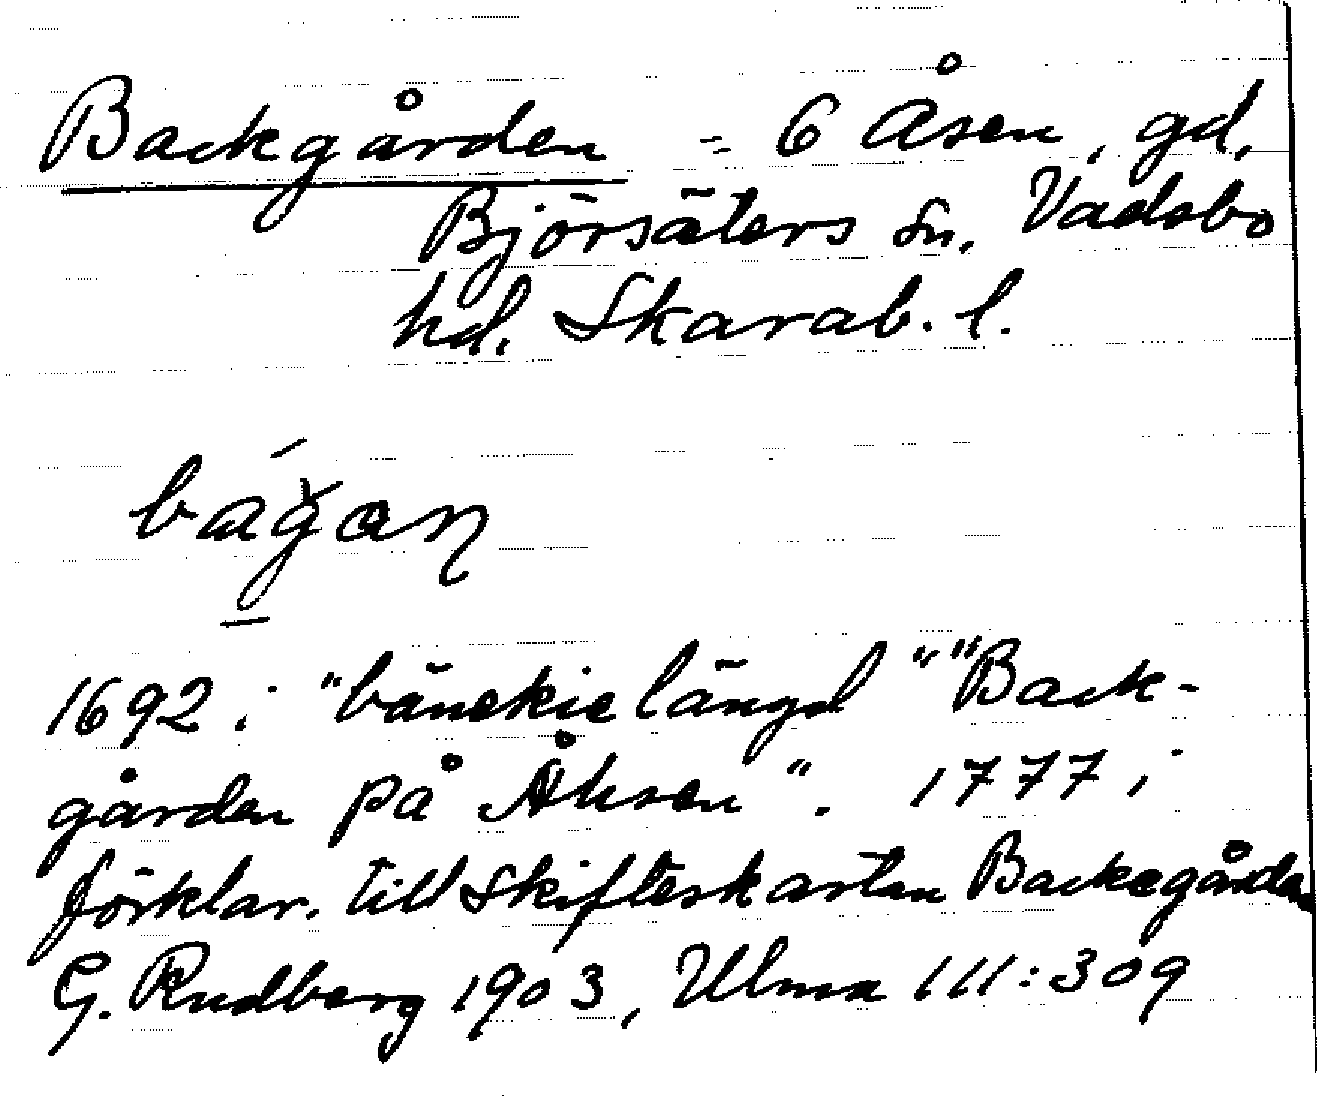 Backgården = 6 Åsen, gd,
Björsäters sn, Vadsbo
hd. Skarab. l.
bágan
1692 i "bänckielängd" "Back-
gården på Åhsen". 1777 i
förklar. till Skifteskartan Backegården
G. Rudberg 1903, Ulma 111:309